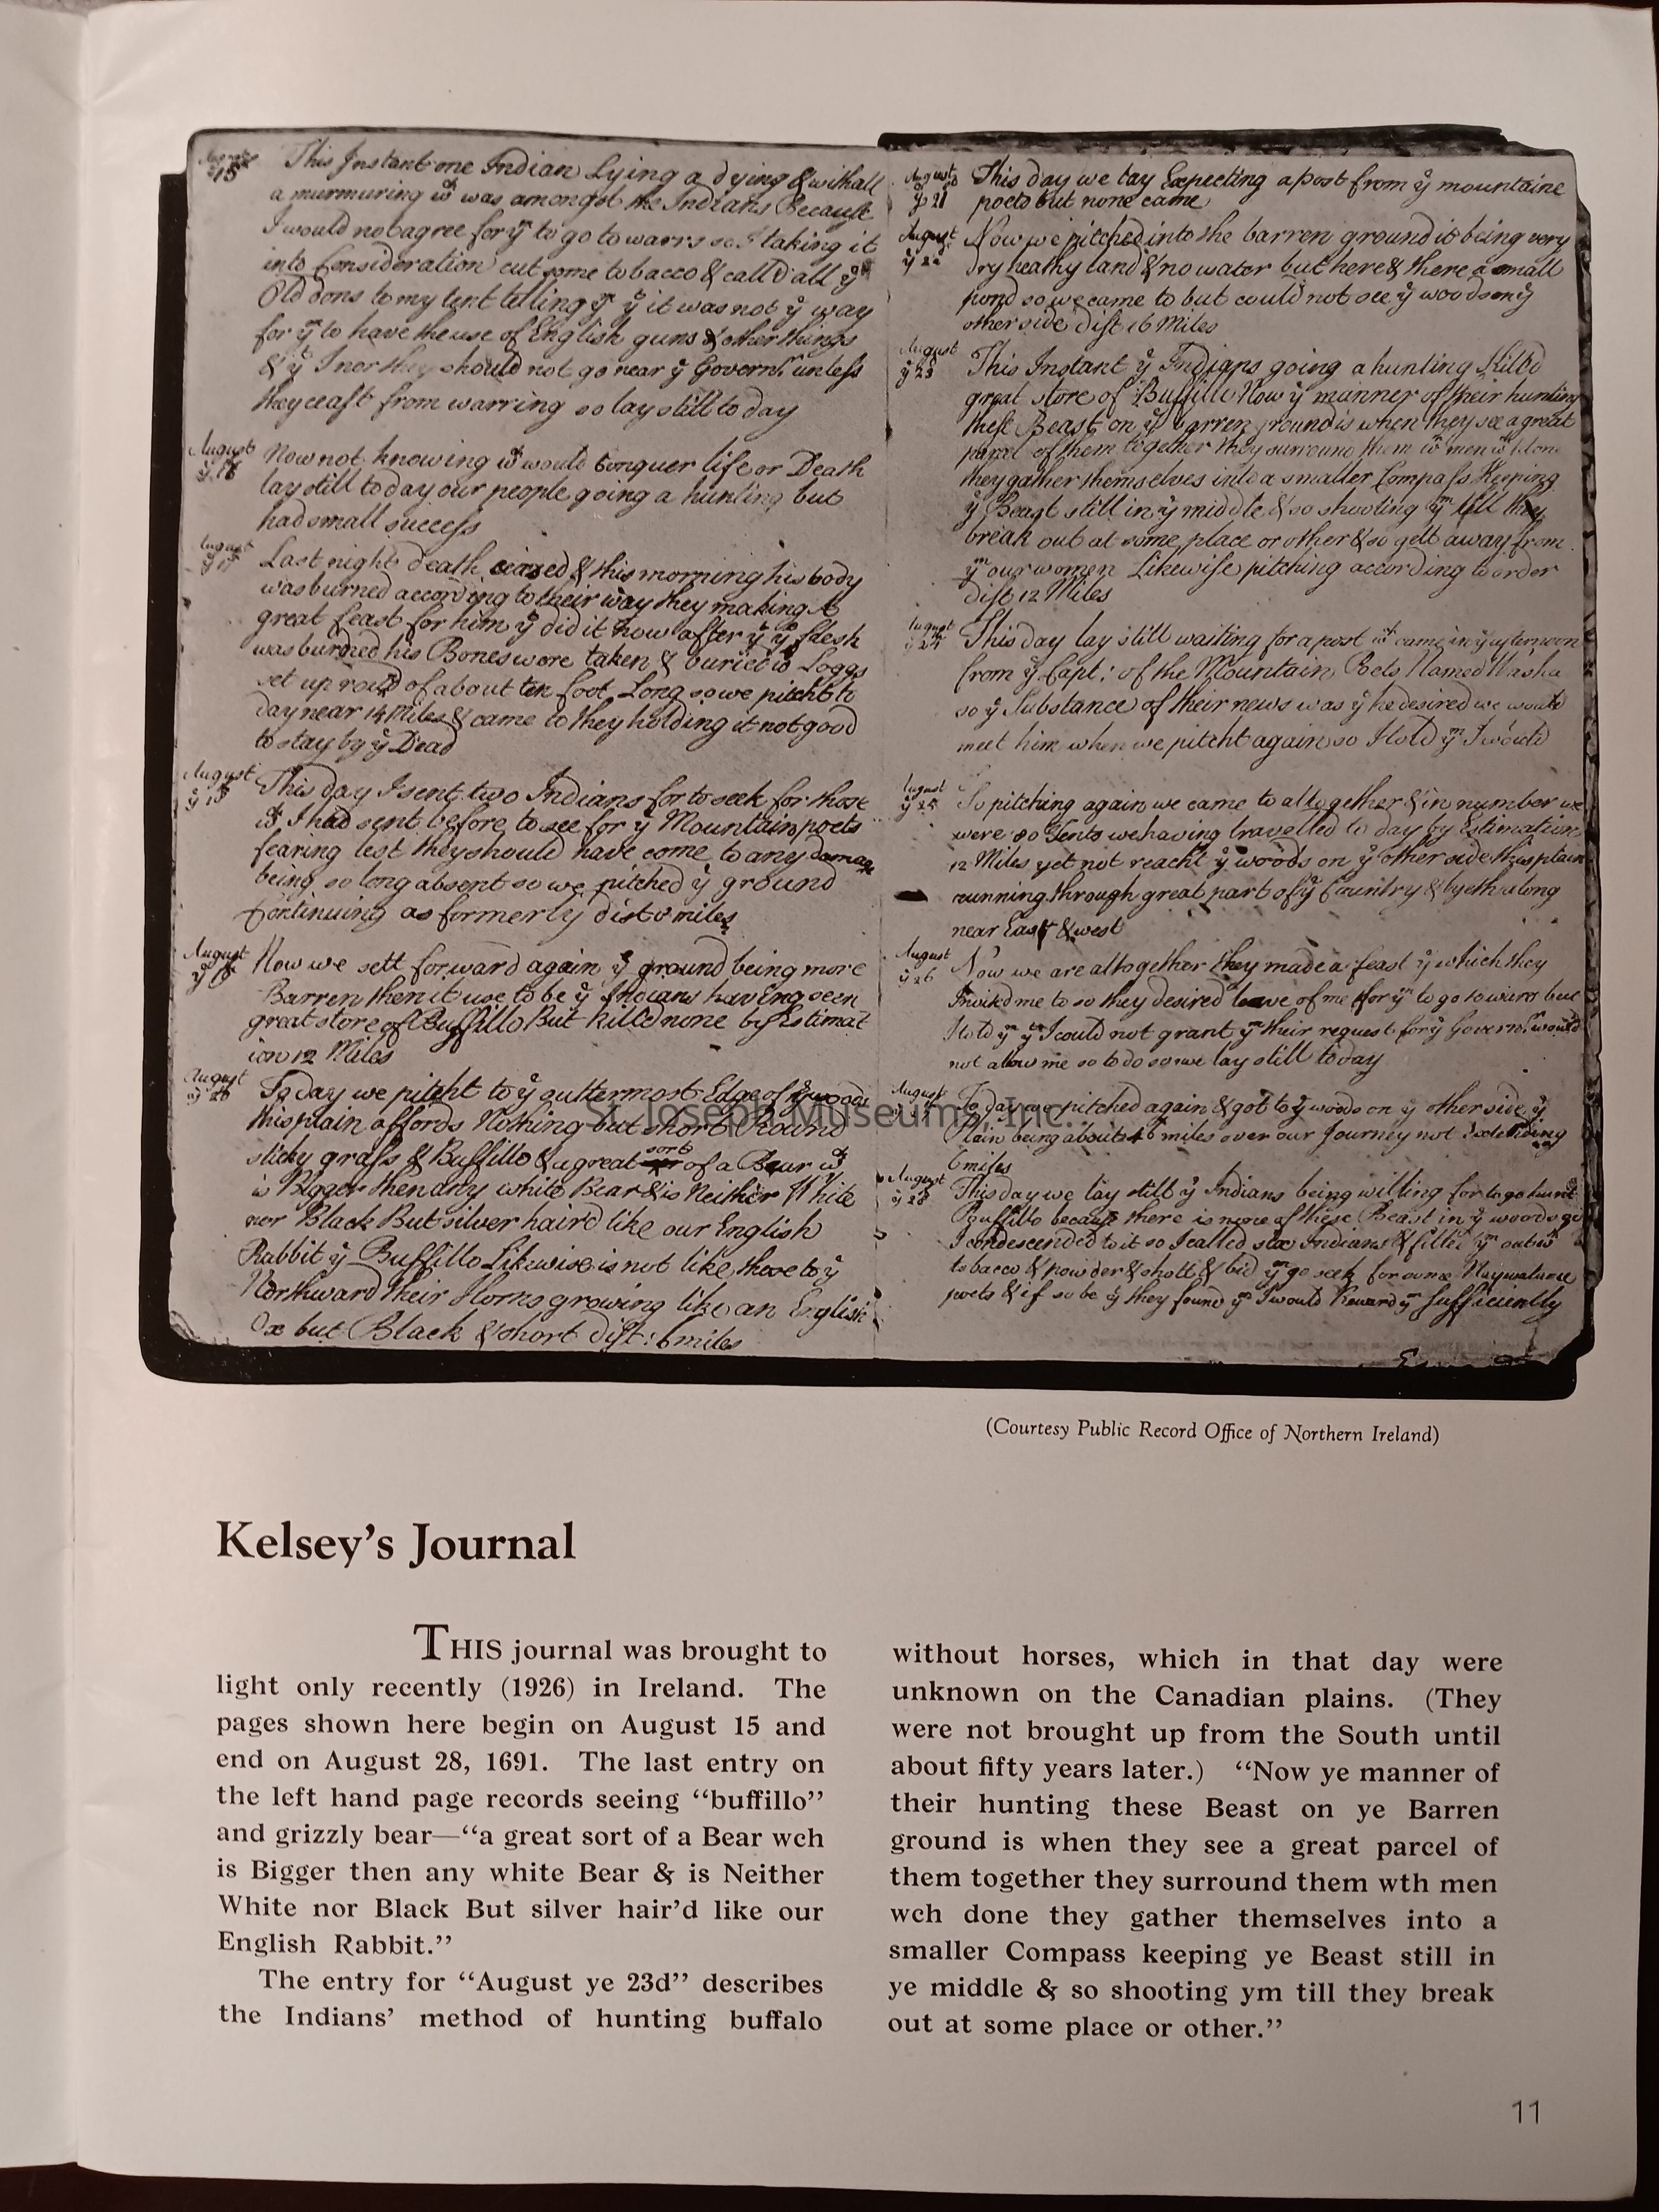 August
ye 15
This Instant one Indian Lying a dying & withall
a murmuring wch was amongst the Indians Because
I would not agree for ym to go to warrs so I taking it
into Consideration cut some tobacco & call'd all ye
Old dons to my tent telling ym yt it was not ye way
for ym to have the use of English guns & other things
& yt I nor they should not go near ye Govern.r unless
they ceast from warring so lay still to day
August
ye 16
Now not knowing wch would Conquer life or Death
lay still to day our people going a hunting but
had small success
August
ye 17
Last night death ceazed & this morning his body
was burned according to their way they making A
great feast for him yt did it now after yt ye flesh
was burned his Bones were taken & buried wth Loggs
set up round of about ten foot Long so we pitcht to
day near 14 Miles & came to they holding it not good
to stay by ye Dead
August
ye 18
This day I sent two Indians for to seek for those
wch I had sent before to see for ye Mountain poets
fearing lest they should have come to any damage
being so long absent so we pitched ye ground
Continuing as formerly dist 8 miles
August
ye 19
Now we sett forward again ye ground being more
Barren then it use to be ye Indians having seen
great store of Buffillo But kill'd none by Estimat
ion 12 Miles
August
ye 20
To day we pitcht to ye outtermost Edge of ye woods
this plain affords Nothing but short Round
sticky grass & Buffillo & a great sort of a Bear wch
is Bigger then any white Bear & is Neither White
nor Black But silver hair'd like our English
Rabbit ye Buffillo Likewise is not like those to ye
Northward their Horns growing like an English
Ox but Black & short dist: 6 miles
August
ye 21
This day we lay Expecting a post from ye mountaine
poets but none came
August
ye 22
Now we pitched into the barren ground it being very
dry heathy land & no water but here & there a small
pond so we came to but could not see ye woods on ye
other side dist 16 Miles
August
ye 23
This Instant ye Indians going a hunting Kill'd
great store of Buffillo Now ye manner of their hunting
these Beast on ye Barren ground is when they see a great
parcel of them together they surround them wth men wch done
they gather themselves into a smaller Compass Keeping
ye Beast still in ye middle & so shooting ym till they
break out at some place or other & so gett away from
ym our women Likewise pitching according to order
dist 12 Miles
August
ye 24
This day lay still waiting for a post wch came in ye afternoon
from ye Capt: of the Mountain Poets Named Washa
so ye Substance of their news was yt he desired we would
meet him when we pitcht again so I told ym I would
August
ye 25
So pitching again we came to altogether & in number we
were 80 Tents we having travelled to day by Estimation
12 Miles yet not reacht ye woods on ye other side this plain
running through great part of ye Country & lyeth along
near East & west
August
ye 26
Now we are altogether they made a feast ye which they
Invited me to so they desired leave of me for ym to go to wars but
I told ym yt I could not grant ym their request for ye Govern.r would
not allow me so to do so we lay still to day
August
To day we pitched again & got to ye woods on ye other side ye
Plain being about 46 miles over our Journey not Exceeding
6 miles
August
ye 28
This day we lay still ye Indians being willing for to go hunt
Buffillo because there is none of these Beast in ye woods
I condescended to it so I called six Indians & fitted ym out wth
tobacco & powder & shott & bid ym go seek for ye Naywatame
poets & if so be yt they found ym I would Reward ym sufficiently
St. Joseph Museums, Inc.
(Courtesy Public Record Office of Northern Ireland)
Kelsey's Journal
THIS journal was brought to
light only recently (1926) in Ireland. The
pages shown here begin on August 15 and
end on August 28, 1691. The last entry on
the left hand page records seeing "buffillo"
and grizzly bear—"a great sort of a Bear wch
is Bigger then any white Bear & is Neither
White nor Black But silver hair'd like our
English Rabbit."
The entry for "August ye 23d" describes
the Indians' method of hunting buffalo
without horses, which in that day were
unknown on the Canadian plains. (They
were not brought up from the South until
about fifty years later.) "Now ye manner of
their hunting these Beast on ye Barren
ground is when they see a great parcel of
them together they surround them wth men
wch done they gather themselves into a
smaller Compass keeping ye Beast still in
ye middle & so shooting ym till they break
out at some place or other."
11